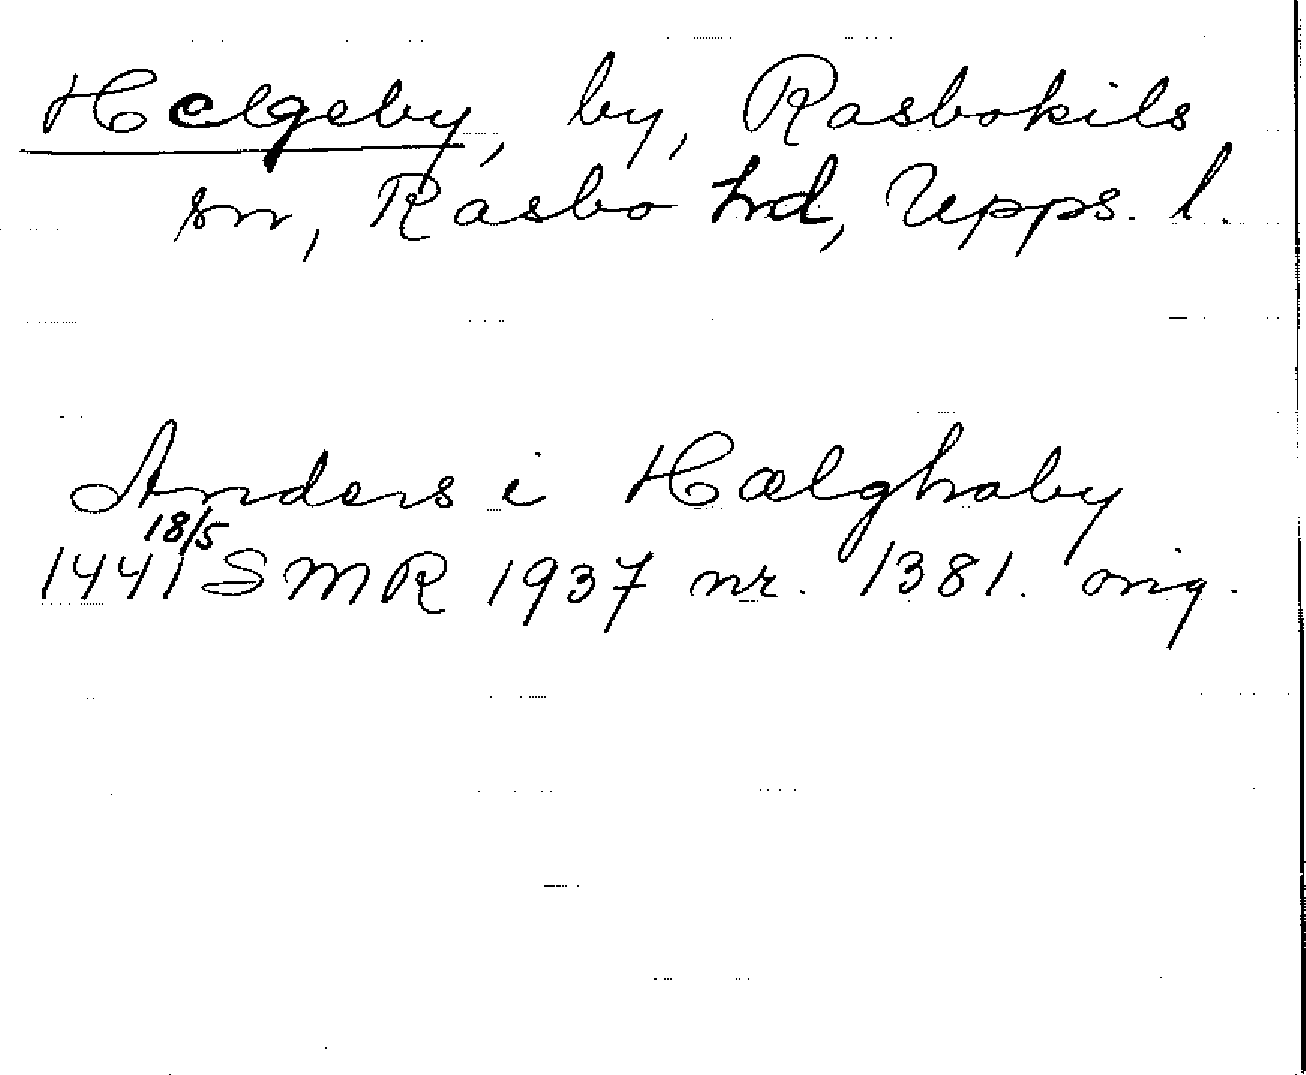 Helgeby, by, Rasbokils
sn, Rasbo hd, Upps. l.
Anders i Hælghaby
18/5
1441 SMR 1937 nr. 1381. orig.